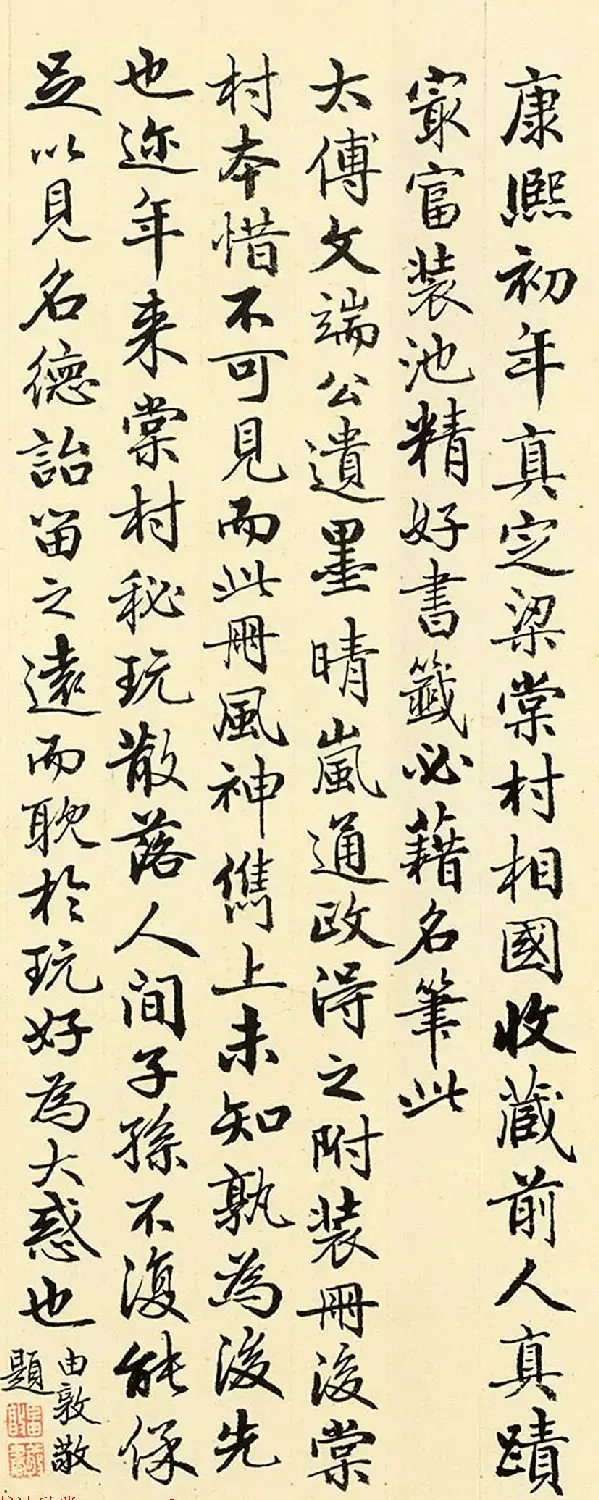 康熙初年真定梁棠村相國收藏前人真蹟
冣富裝池精好書籤必藉名筆此
太傅文端公遺墨晴嵐通政得之附裝冊後棠
村本惜不可見而此冊風神儁上未知孰為後先
也迩年来棠村秘玩散落人間子孫不復能保
足以見名德詒留之遠而耽於玩好為大惑也
由敦敬
題